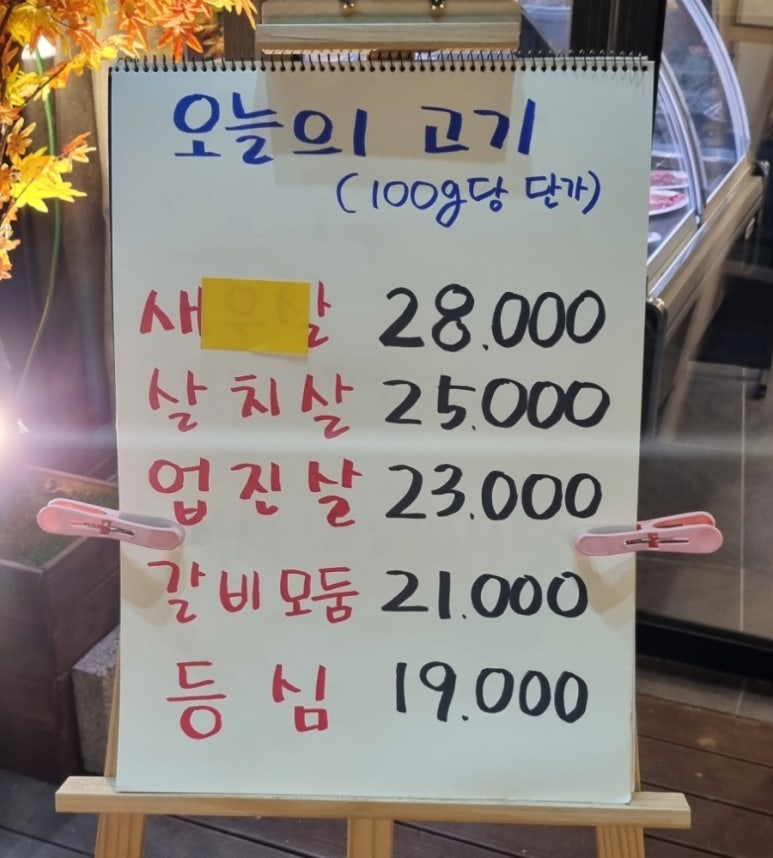 오늘의 고기
(100g당 단가)
28.000
살치살 25.000
업진살 23.000
갈비모둠 21.000
등심 19.000